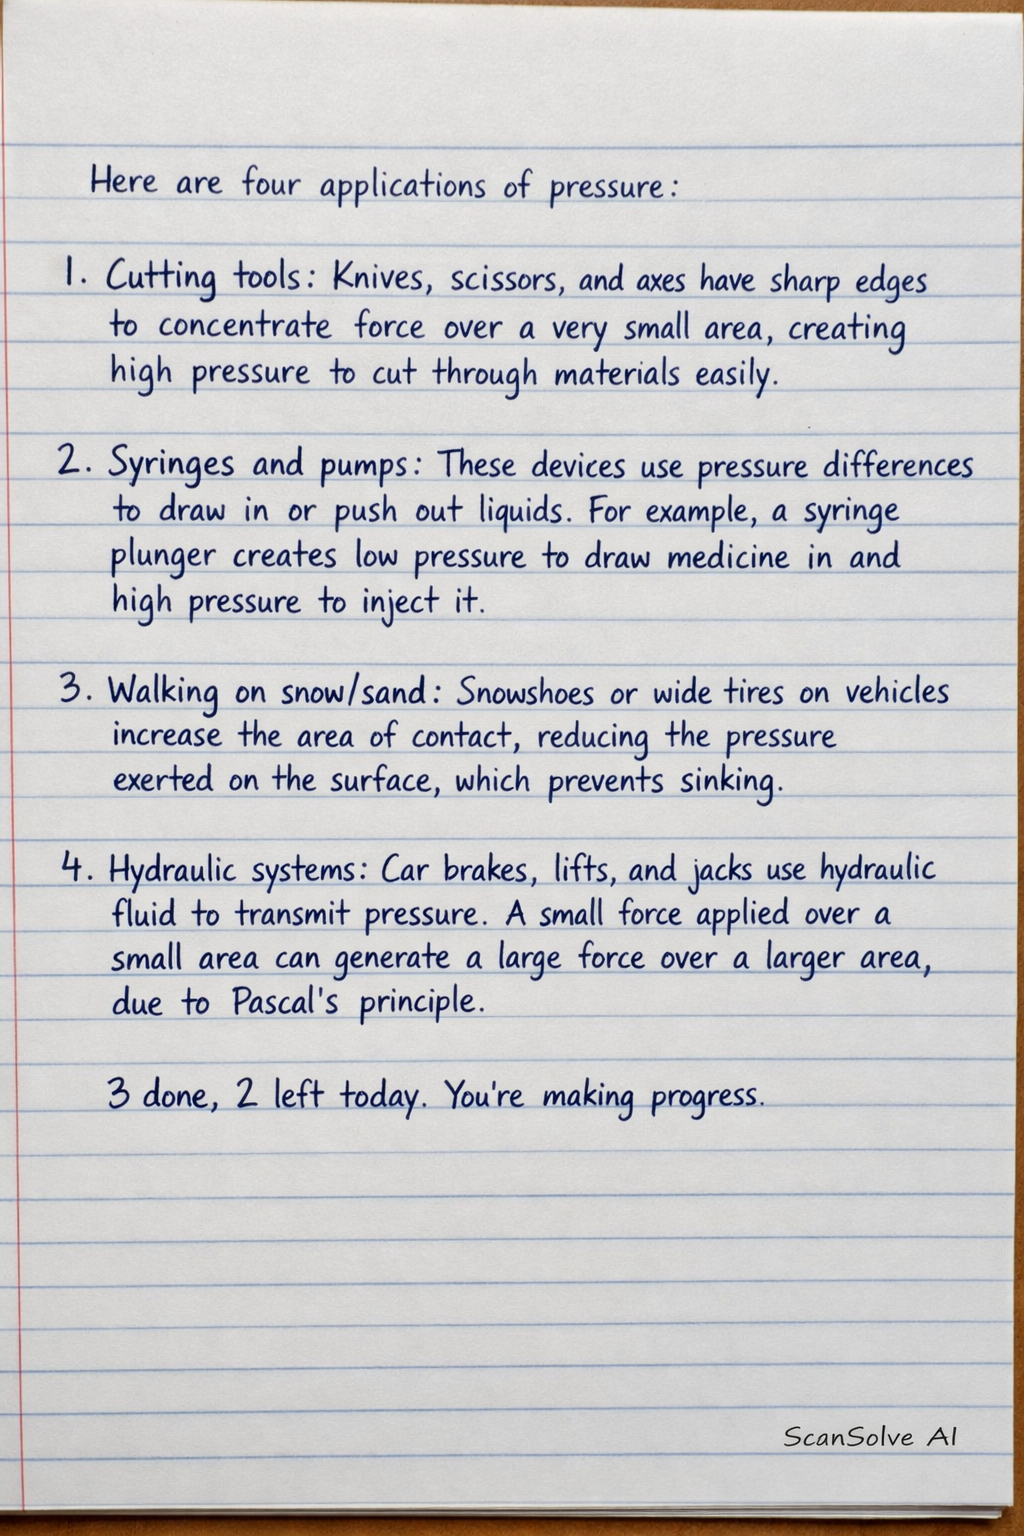 Here are four applications of pressure:
1. Cutting tools: Knives, scissors, and axes have sharp edges
to concentrate force over a very small area, creating
high pressure to cut through materials easily.
2. Syringes and pumps: These devices use pressure differences
to draw in or push out liquids. For example, a syringe
plunger creates low pressure to draw medicine in and
high pressure to inject it.
3. Walking on snow/sand: Snowshoes or wide tires on vehicles
increase the area of contact, reducing the pressure
exerted on the surface, which prevents sinking.
4. Hydraulic systems: Car brakes, lifts, and jacks use hydraulic
fluid to transmit pressure. A small force applied over a
small area can generate a large force over a larger area,
due to Pascal's principle.
3 done, 2 left today. You're making progress.
ScanSolve AI